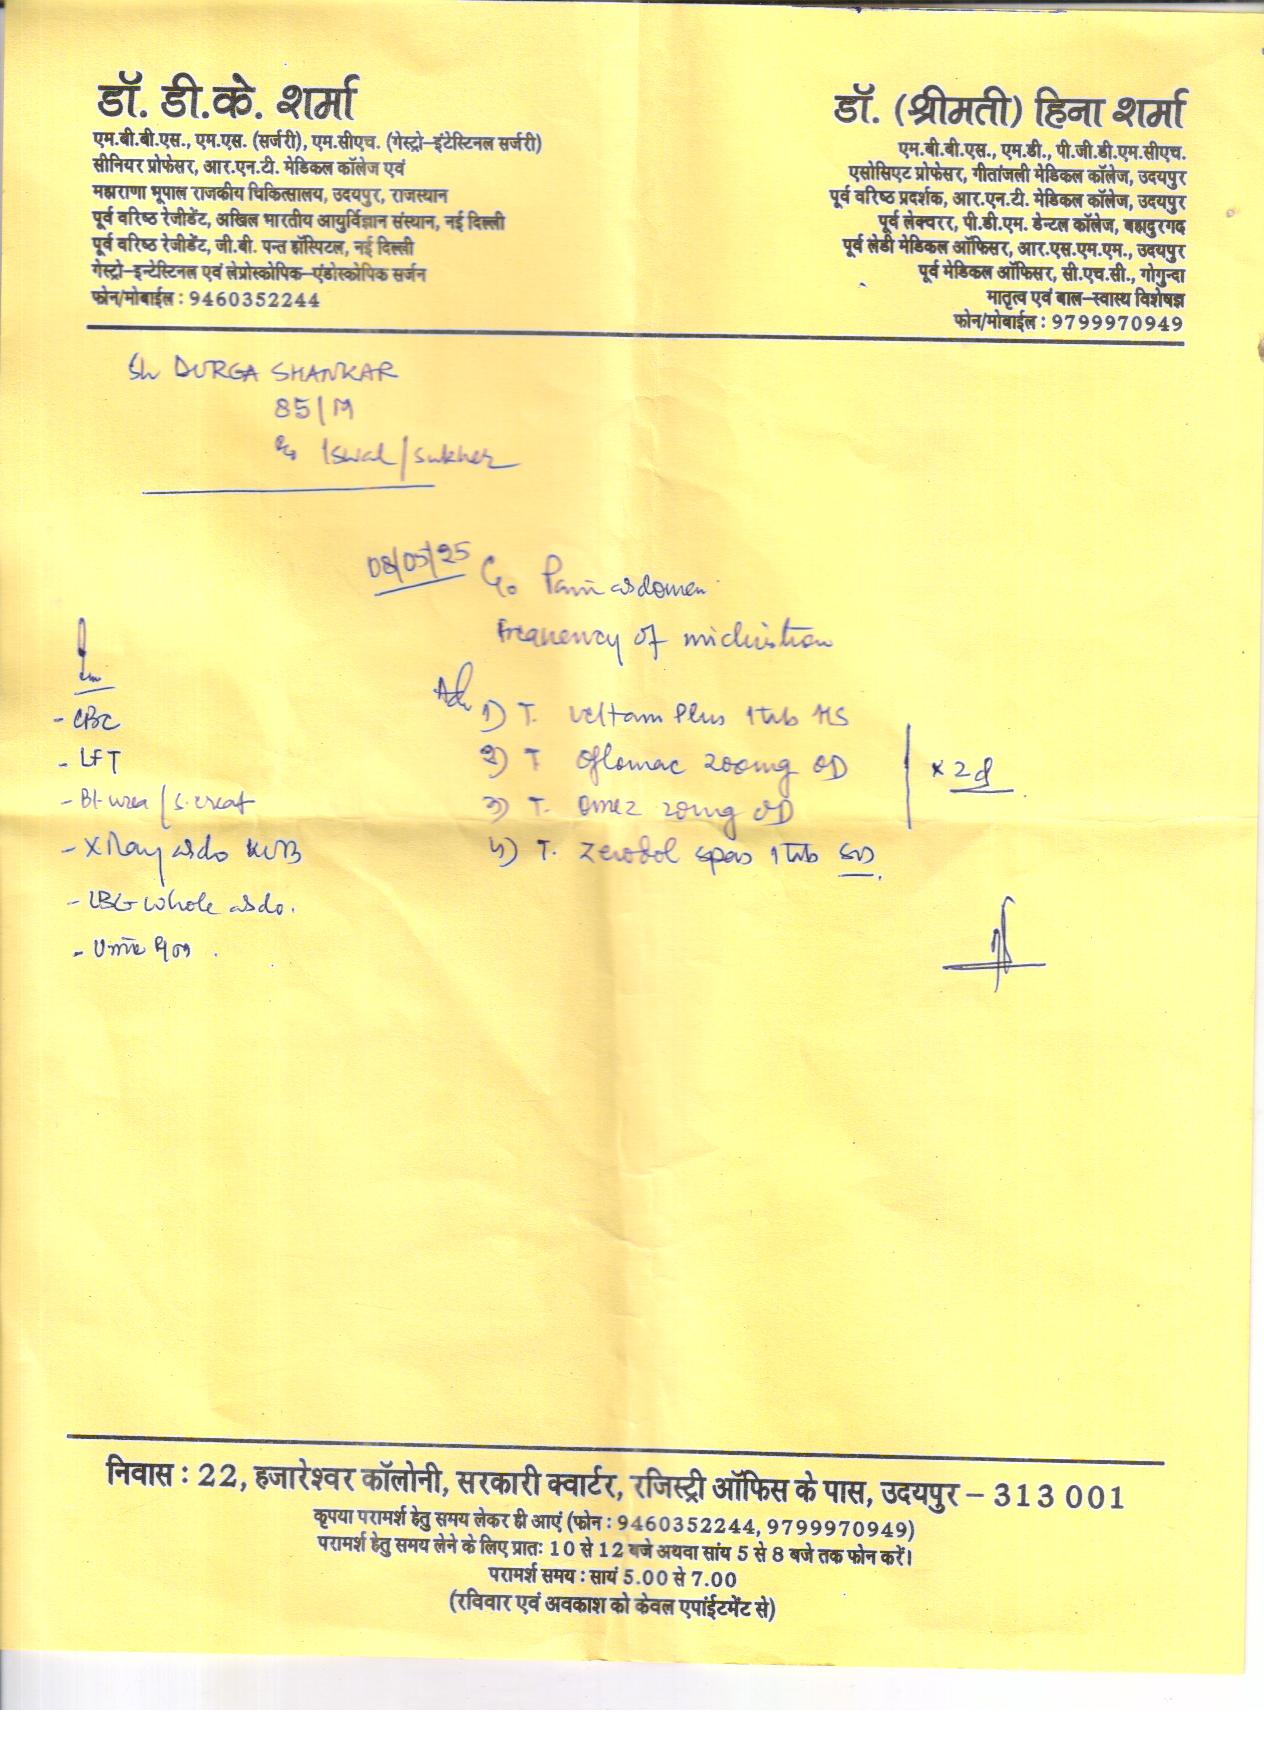 डॉ. डी.के. शर्मा
एम.बी.बी.एस., एम.एस. (सर्जरी), एम.सीएच. (गेस्ट्रो–इंटेस्टिनल सर्जरी)
सीनियर प्रोफेसर, आर.एन.टी. मेडिकल कॉलेज एवं
महाराणा भूपाल राजकीय चिकित्सालय, उदयपुर, राजस्थान
पूर्व वरिष्ठ रेजीडेंट, अखिल भारतीय आयुर्विज्ञान संस्थान, नई दिल्ली
पूर्व वरिष्ठ रेजीडेंट, जी.बी. पन्त हॉस्पिटल, नई दिल्ली
गेस्ट्रो–इन्टेस्टिनल एवं लेप्रोस्कोपिक–एंडोस्कोपिक सर्जन
फोन/मोबाईल : 9460352244
डॉ. (श्रीमती) हिना शर्मा
एम.बी.बी.एस., एम.डी., पी.जी.डी.एम.सीएच.
एसोसिएट प्रोफेसर, गीतांजली मेडिकल कॉलेज, उदयपुर
पूर्व वरिष्ठ प्रदर्शक, आर.एन.टी. मेडिकल कॉलेज, उदयपुर
पूर्व लेक्चरर, पी.डी.एम. डेन्टल कॉलेज, बहादुरगढ़
पूर्व लेडी मेडिकल ऑफिसर, आर.एस.एम.एम., उदयपुर
पूर्व मेडिकल ऑफिसर, सी.एच.सी., गोगुन्दा
मातृत्व एवं बाल–स्वास्थ विशेषज्ञ
फोन/मोबाईल : 9799970949
Sh DURGA SHANKAR
85/M
Iswal/Sukher
08/05/25 C/o Pain abdomen
Frequency of michistion
Adv
1) T. Veltam Plus 1 tab HS
2) T. Oflomac 200mg OD
3) T. Omez 20mg OD
x 2d
4) T. Zerodol spas 1 tab
- CBC
- LFT
- Bl. urea / S. creat
- X Ray abdo KUB
- USG whole abdo.
- Urine
निवास : 22, हजारेश्वर कॉलोनी, सरकारी क्वार्टर, रजिस्ट्री ऑफिस के पास, उदयपुर – 313 001
कृपया परामर्श हेतु समय लेकर ही आएं (फोन : 9460352244, 9799970949)
परामर्श हेतु समय लेने के लिए प्रातः 10 से 12 बजे अथवा सांय 5 से 8 बजे तक फोन करें।
परामर्श समय : सायं 5.00 से 7.00
(रविवार एवं अवकाश को केवल एपांईटमेंट से)